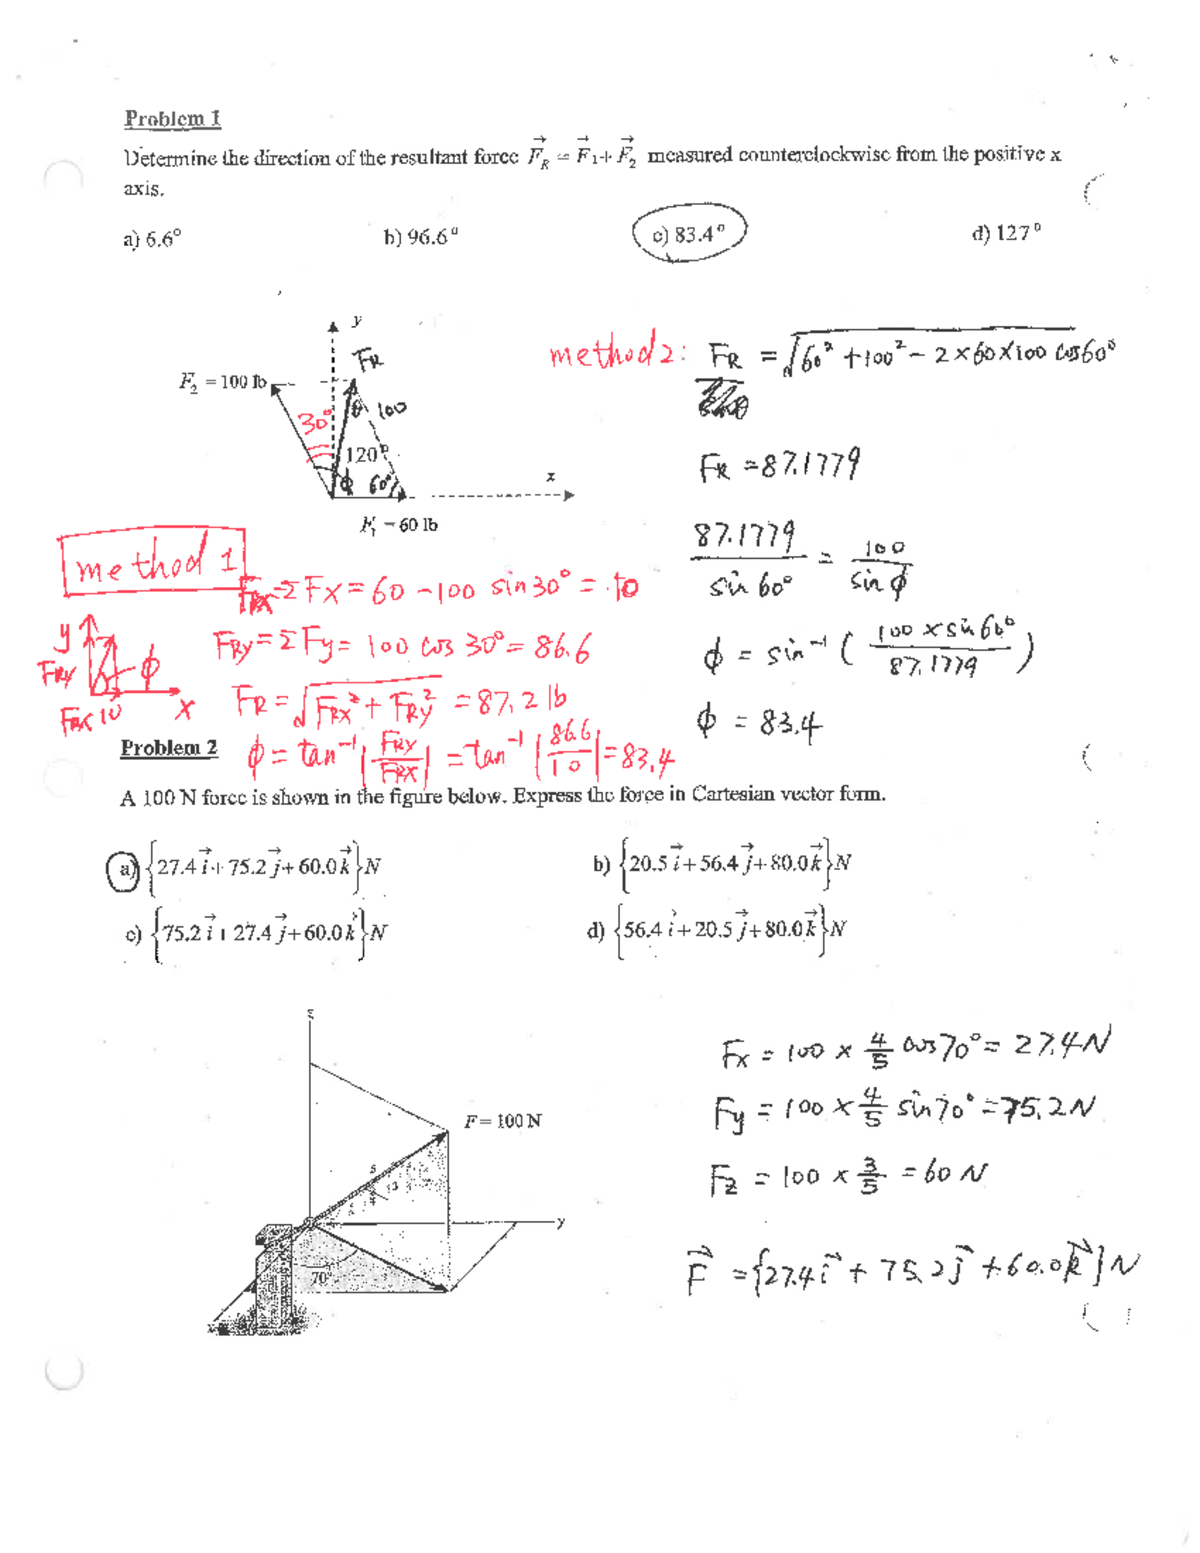 Problem 1
Determine the direction of the resultant force F⃗_R = F⃗_1 + F⃗_2 measured counterclockwise from the positive x
axis.
a) 6.6° b) 96.6° c) 83.4° d) 127°
y
F_R
F_2 = 100 lb
30°
θ 100
120°
ϕ 60°
x
F_1 = 60 lb
method 2: F_R = √(60² + 100² - 2×60×100 cos60°)
F_R = 87.1779
87.1779 / sin 60° = 100 / sin ϕ
ϕ = sin⁻¹ (100 × sin 60° / 87.1779)
ϕ = 83.4
method 1
F_Rx = ΣFx = 60 - 100 sin 30° = 10
F_Ry = ΣFy = 100 cos 30° = 86.6
F_R = √(F_Rx² + F_Ry²) = 87.2 lb
ϕ = tan⁻¹ |F_Ry / F_Rx| = tan⁻¹ |86.6 / 10| = 83.4
y
F_Ry
ϕ
F_Rx 10
x
Problem 2
A 100 N force is shown in the figure below. Express the force in Cartesian vector form.
a) {27.4 i⃗ + 75.2 j⃗ + 60.0 k⃗} N b) {20.5 i⃗ + 56.4 j⃗ + 80.0 k⃗} N
c) {75.2 i⃗ + 27.4 j⃗ + 60.0 k⃗} N d) {56.4 i⃗ + 20.5 j⃗ + 80.0 k⃗} N
z
F = 100 N
5
3
4
y
70°
x
Fx = 100 × 4/5 cos 70° = 27.4 N
Fy = 100 × 4/5 sin 70° = 75.2 N
Fz = 100 × 3/5 = 60 N
F⃗ = {27.4 i⃗ + 75.2 j⃗ + 60.0 k⃗} N